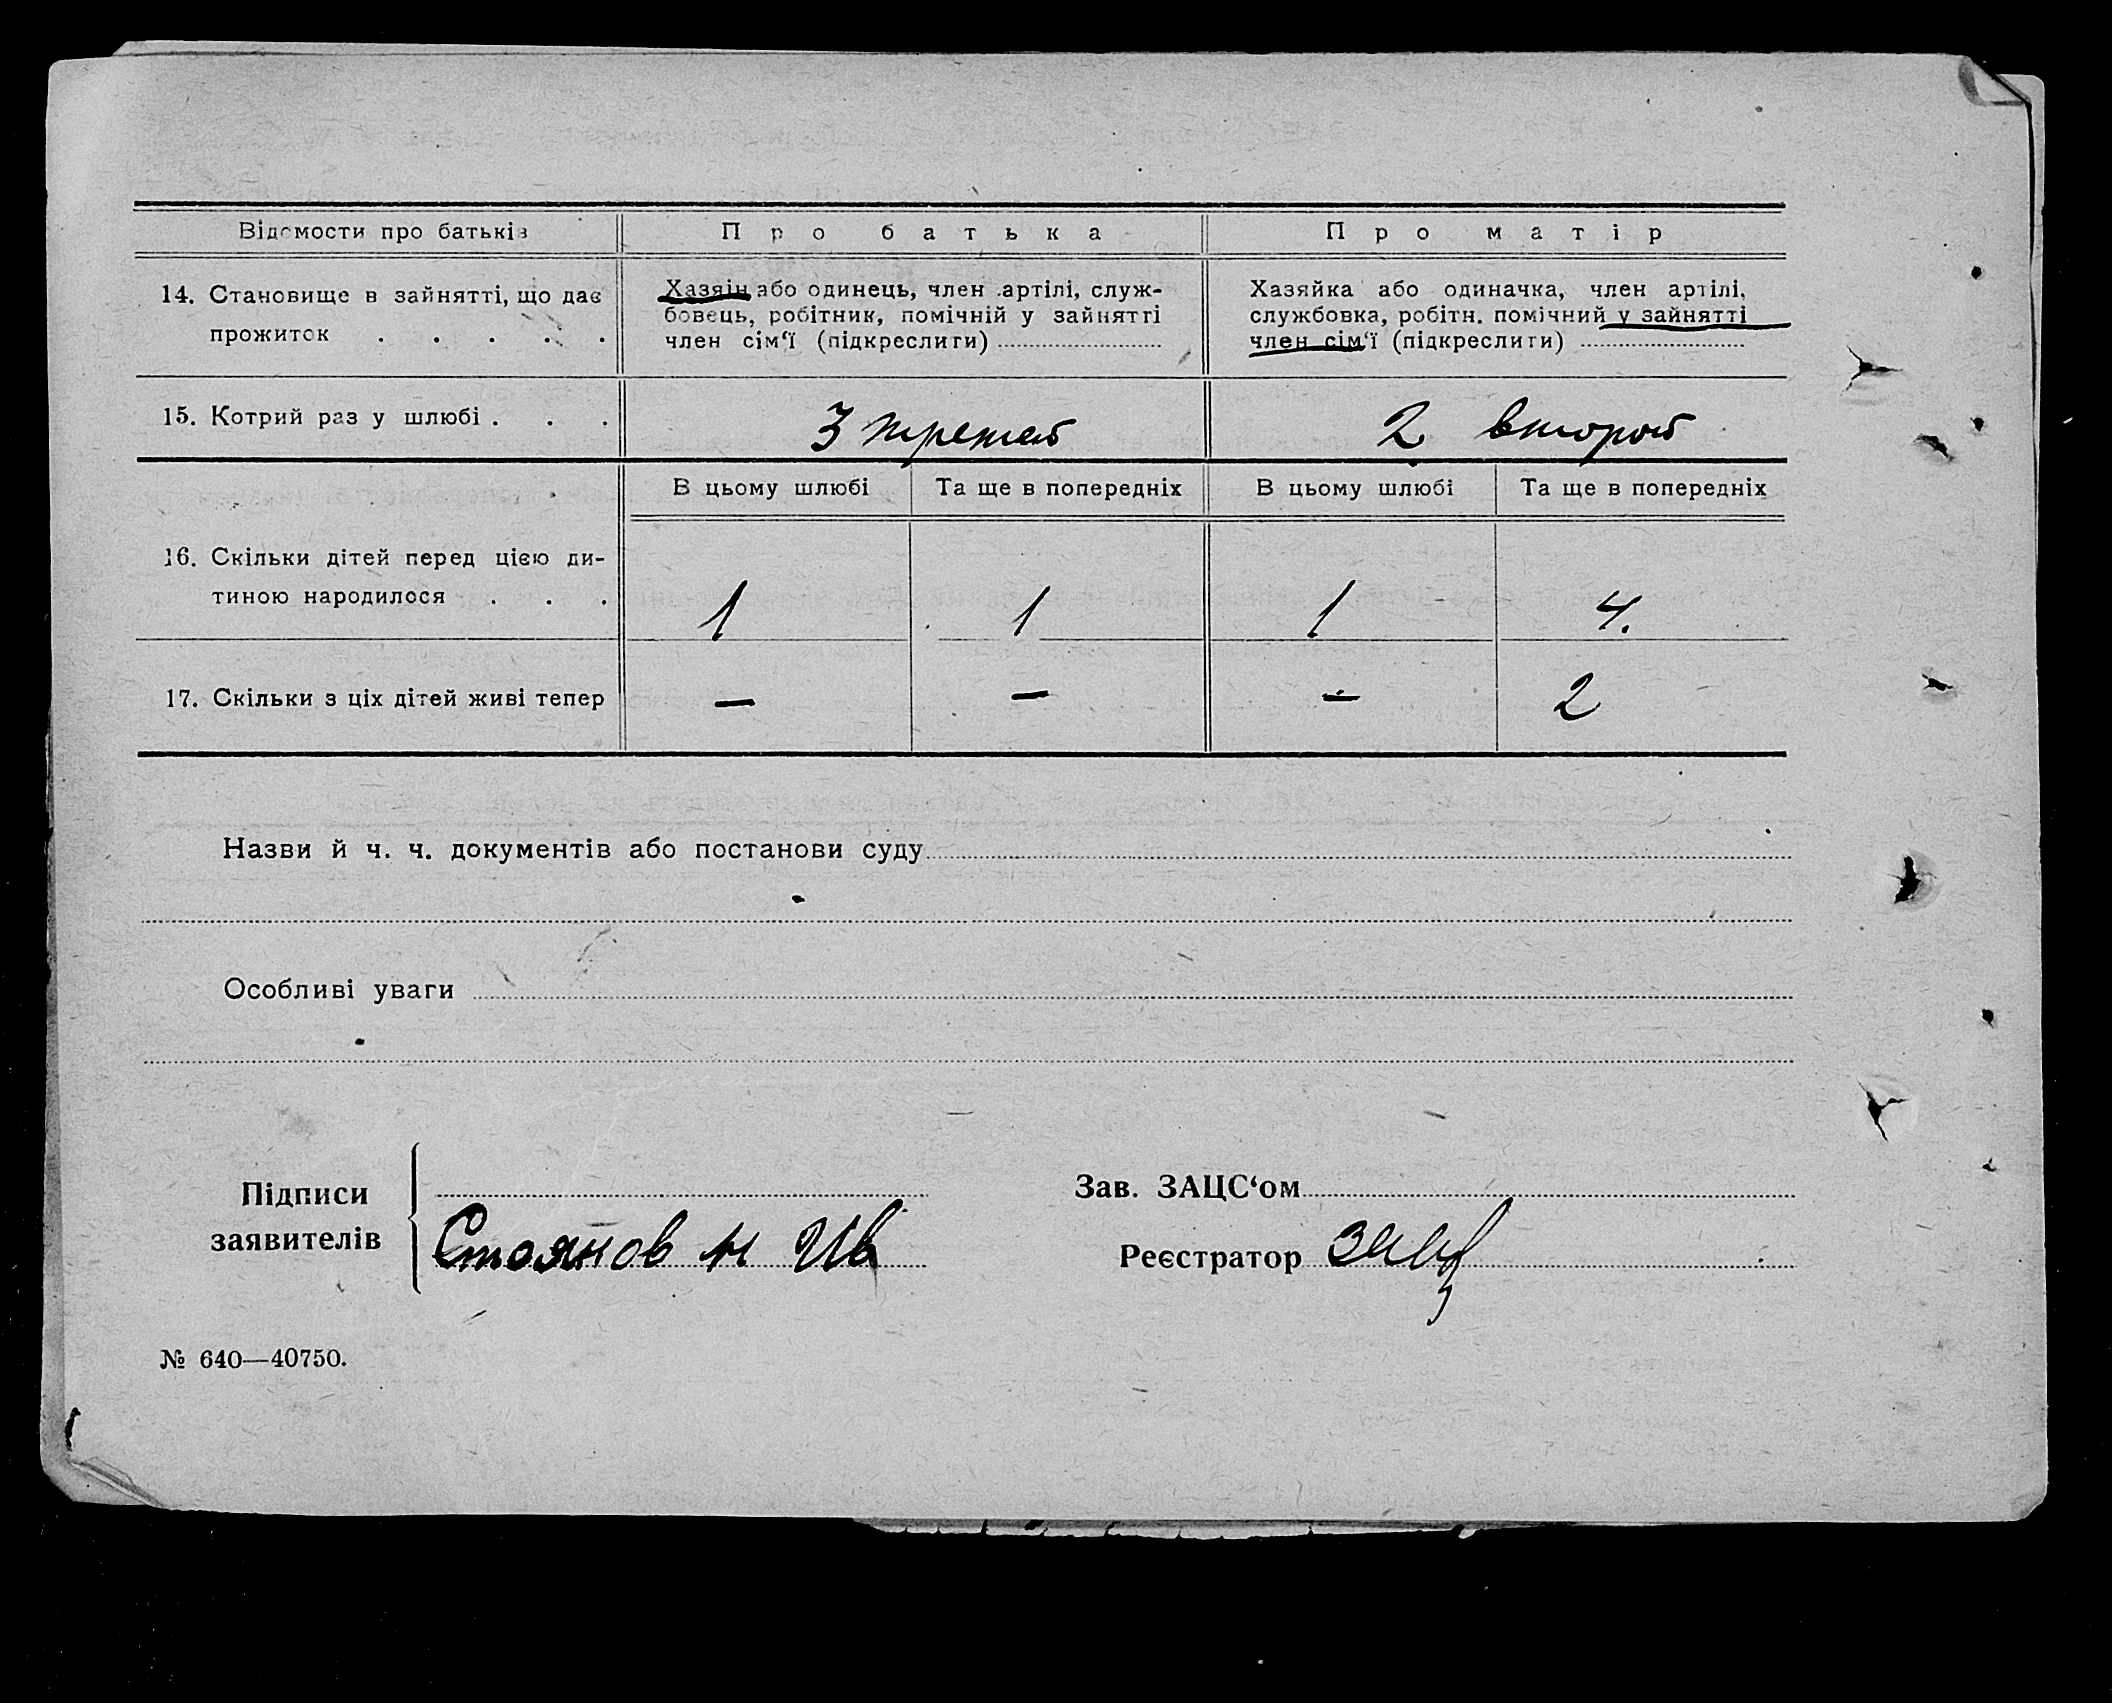 Відомости про батьків
Про батька
Про матір
14. Становище в зайнятті, що дає
прожиток . . . . .
Хазяїн або одинець, член артілі, служ-
бовець, робітник, помічній у зайнятті
член сім‘ї (підкреслити)
Хазяйка або одиначка, член артілі,
службовка, робітн. помічний у зайнятті
член сім‘ї (підкреслити)
15. Котрий раз у шлюбі . . .
3 третий
2 второй
В цьому шлюбі
Та ще в попередніх
В цьому шлюбі
Та ще в попередніх
16. Скільки дітей перед цією ди-
тиною народилося . . .
1
1
1
4.
17. Скільки з ціх дітей живі тепер
—
—
—
2
Назви й ч. ч. документів або постанови суду
Особливі уваги
Підписи
заявителів
Стоянов И Ив
Зав. ЗАЦС‘ом
Реєстратор
№ 640—40750.